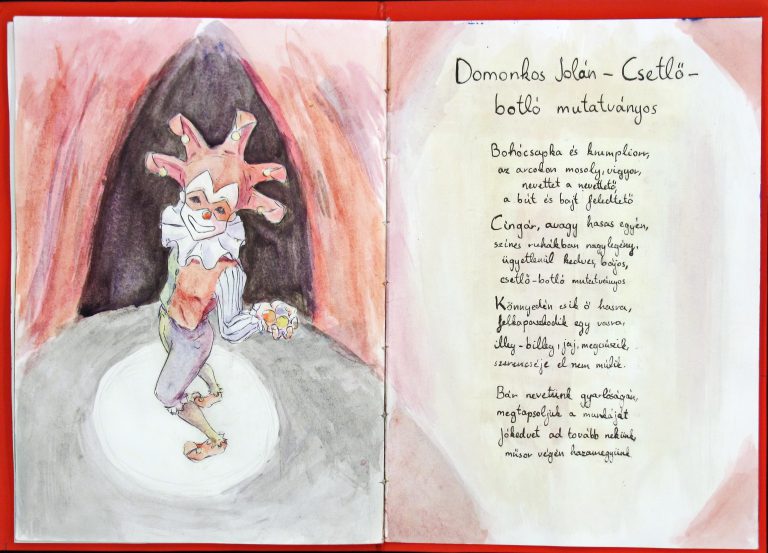 Domonkos Jolán – Csetlő-
botló mutatványos
Bohócsapka és krumpliorr,
az arcokon mosoly, vigyor,
nevettet a nevethető,
a bút és bajt feledtető
Cingár, avagy hasas egyén,
színes ruhákban nagylegény,
ügyetlenül kedves, bájos,
csetlő-botló mutatványos
Könnyedén esik ő hasra,
felkapaszkodik egy vasra,
illeg-billeg, jaj, megcsúszik,
szerencséje el nem múlik.
Bár nevetünk gyarlóságán,
megtapsoljuk a munkáját
Jókedvet ad tovább nekünk,
műsor végén hazamegyünk